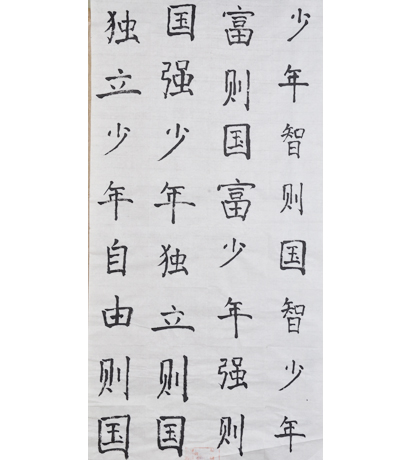 少年智则国智少年
富则国富少年强则
国强少年独立则国
独立少年自由则国